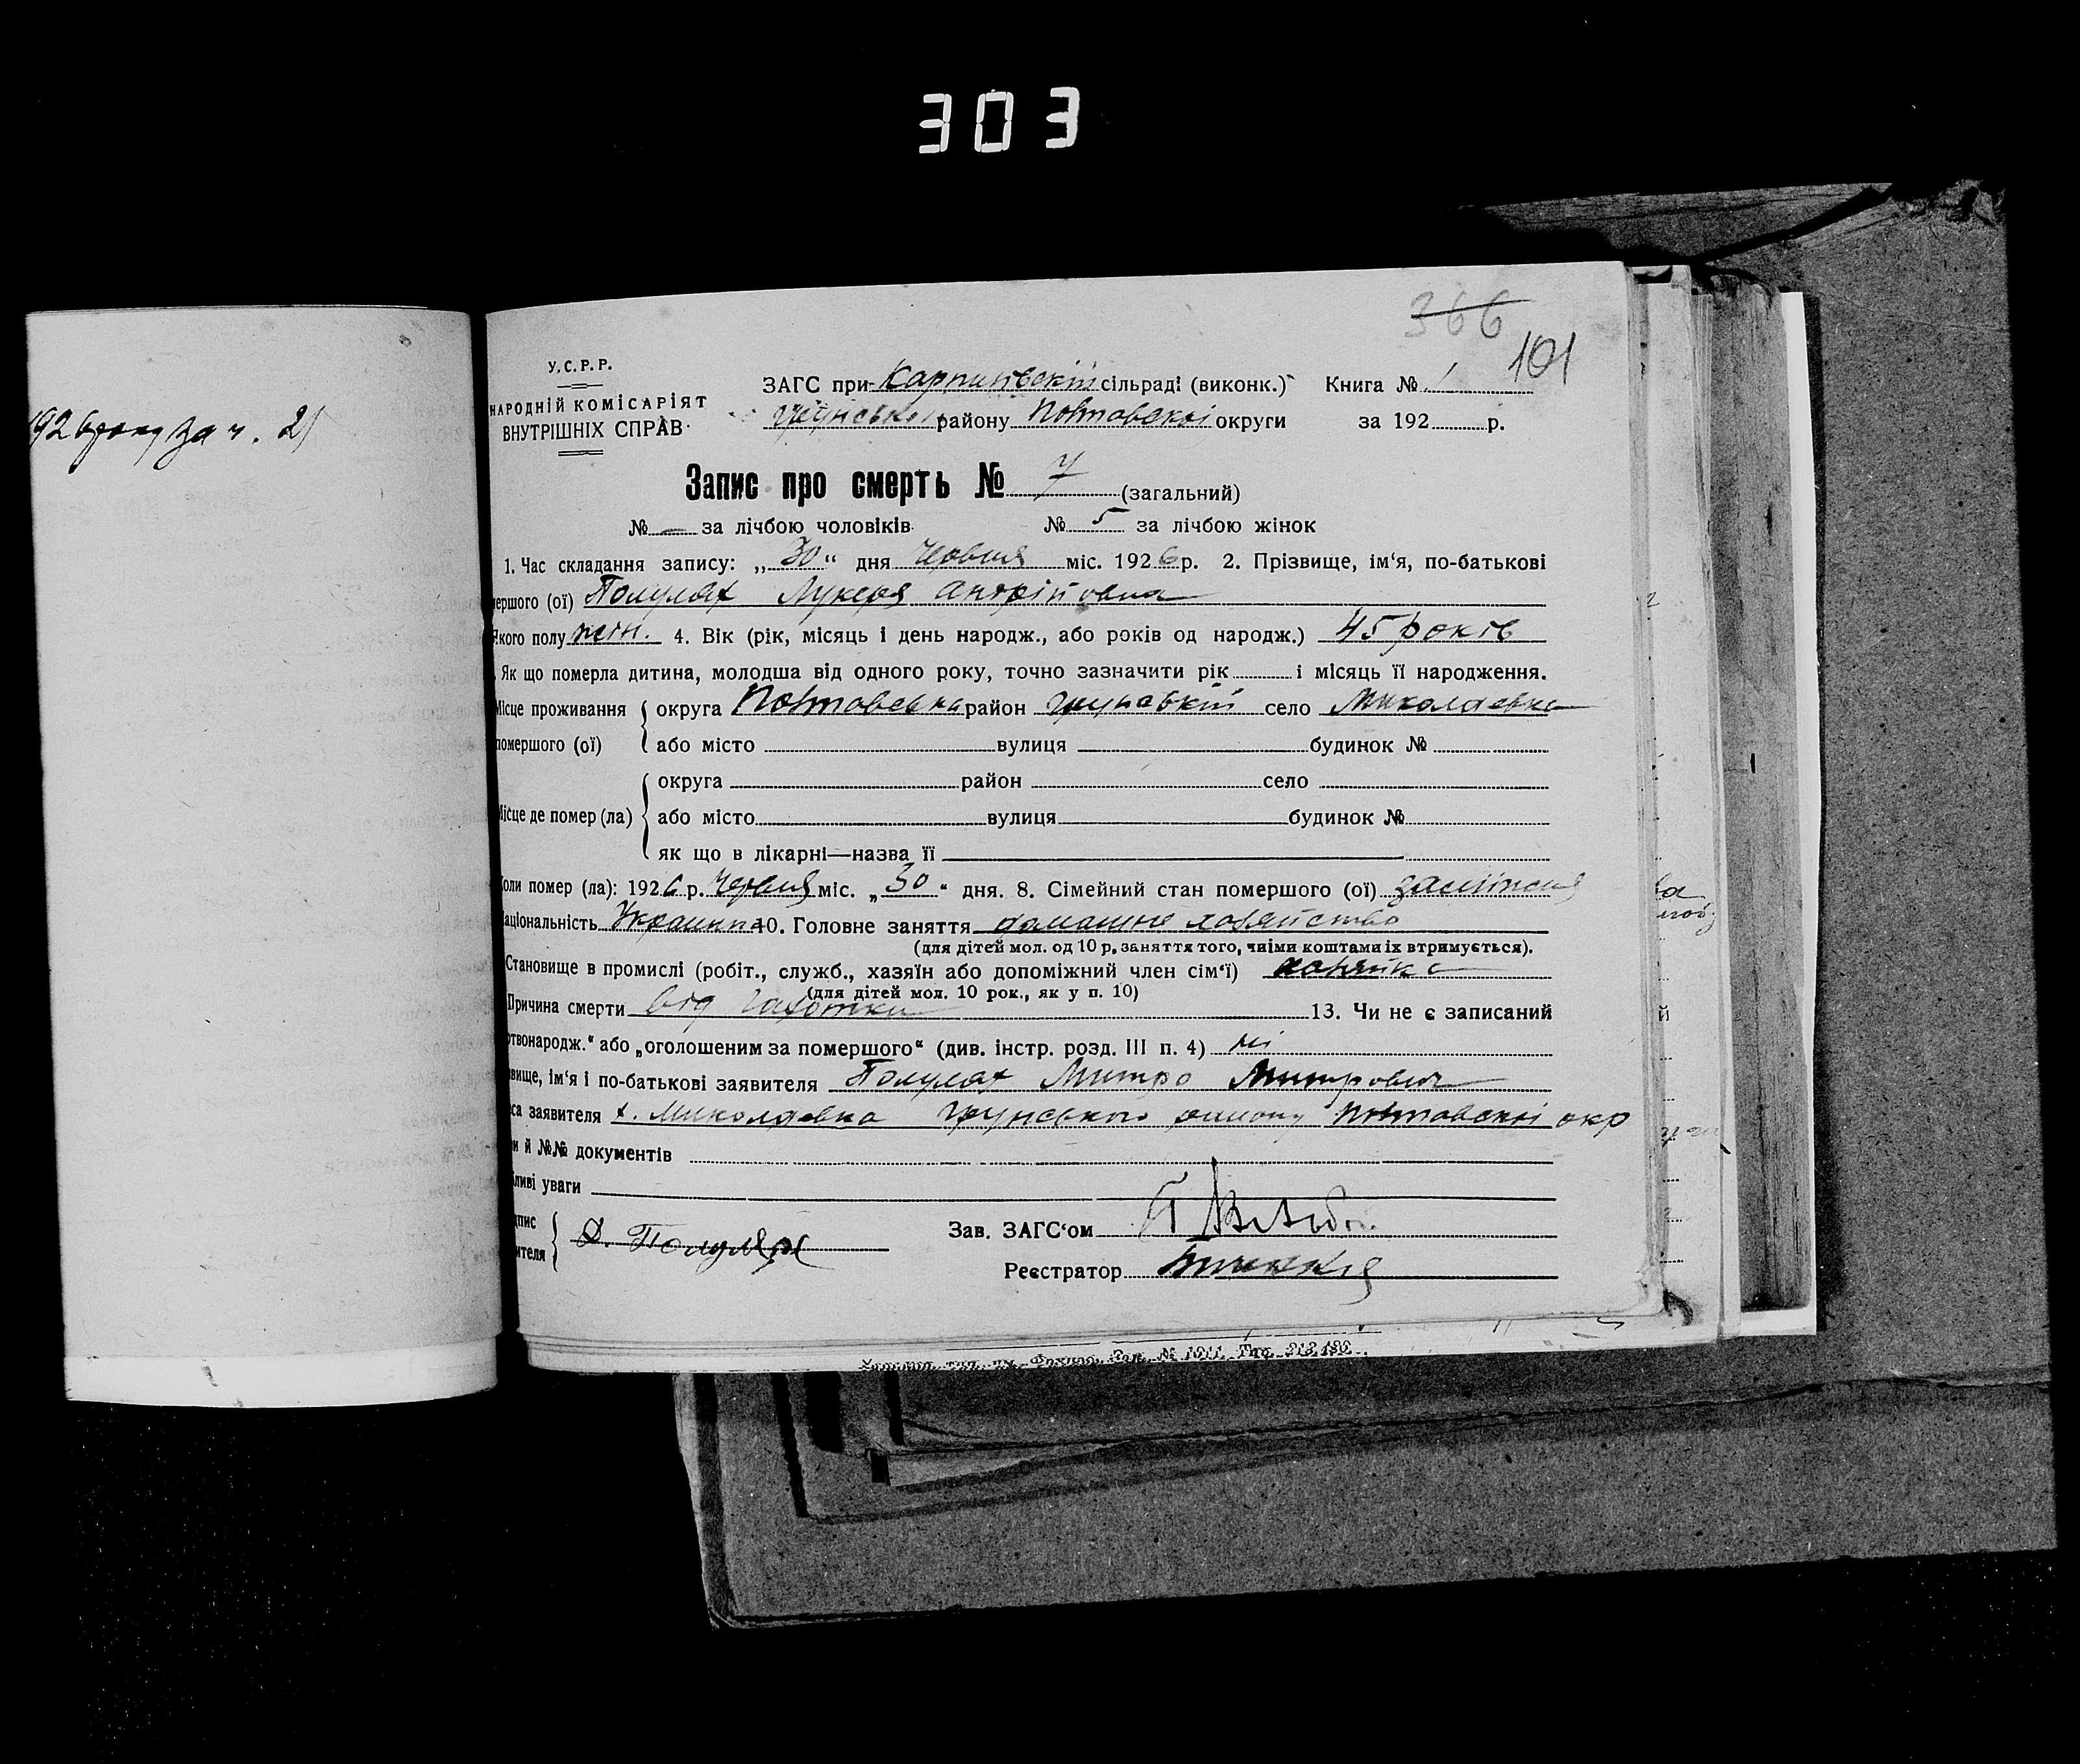 303
366
101
У.С.Р.Р.
НАРОДНІЙ КОМІСАРІЯТ
ВНУТРІШНІХ СПРАВ
1926 року за ч. 21
ЗАГС при Карпилівській сільраді (виконк.) Книга № 1
Грунського району Полтавської округи за 192 р.
Запис про смерть № 7 (загальний)
№ — за лічбою чоловіків № 5 за лічбою жінок
1. Час складання запису: „30“ дня Червня міс. 1926 р. 2. Прізвище, ім‘я, по-батькові
мершого (ої) Полулях Лукеря Андрійовна
якого полу жін. 4. Вік (рік, місяць і день народж., або років од народж.) 45 років
Як що померла дитина, молодша від одного року, точно зазначити рік і місяць її народження.
Місце проживання помершого (ої) округа Полтавська район Грунський село Миколаевка
або місто вулиця будинок №
Місце де помер (ла) округа район село
або місто вулиця будинок №
як що в лікарні—назва її
Коли помер (ла): 1926 р. Червня міс. „30“ дня. 8. Сімейний стан помершого (ої)
аціональність Украинка 10. Головне заняття домашне хозяйство
(для дітей мол. од 10 р. заняття того, чиїми коштами їх втримується).
Становище в промислі (робіт., служб., хазяїн або допоміжний член сім‘ї) хозяйка
(для дітей мол. 10 рок., як у п. 10)
Причина смерти від чахотки 13. Чи не є записаний
ртвонародж.“ або „оголошеним за помершого“ (див. інстр. розд. III п. 4) ні
звище, ім‘я і по-батькові заявителя Полулях Митро Митрович
са заявителя х. Миколаевка Грунського району Полтавскої окр
и й №№ документів
ливі уваги
дпис
вителя Д. Полулях
Зав. ЗАГС‘ом
Реєстратор